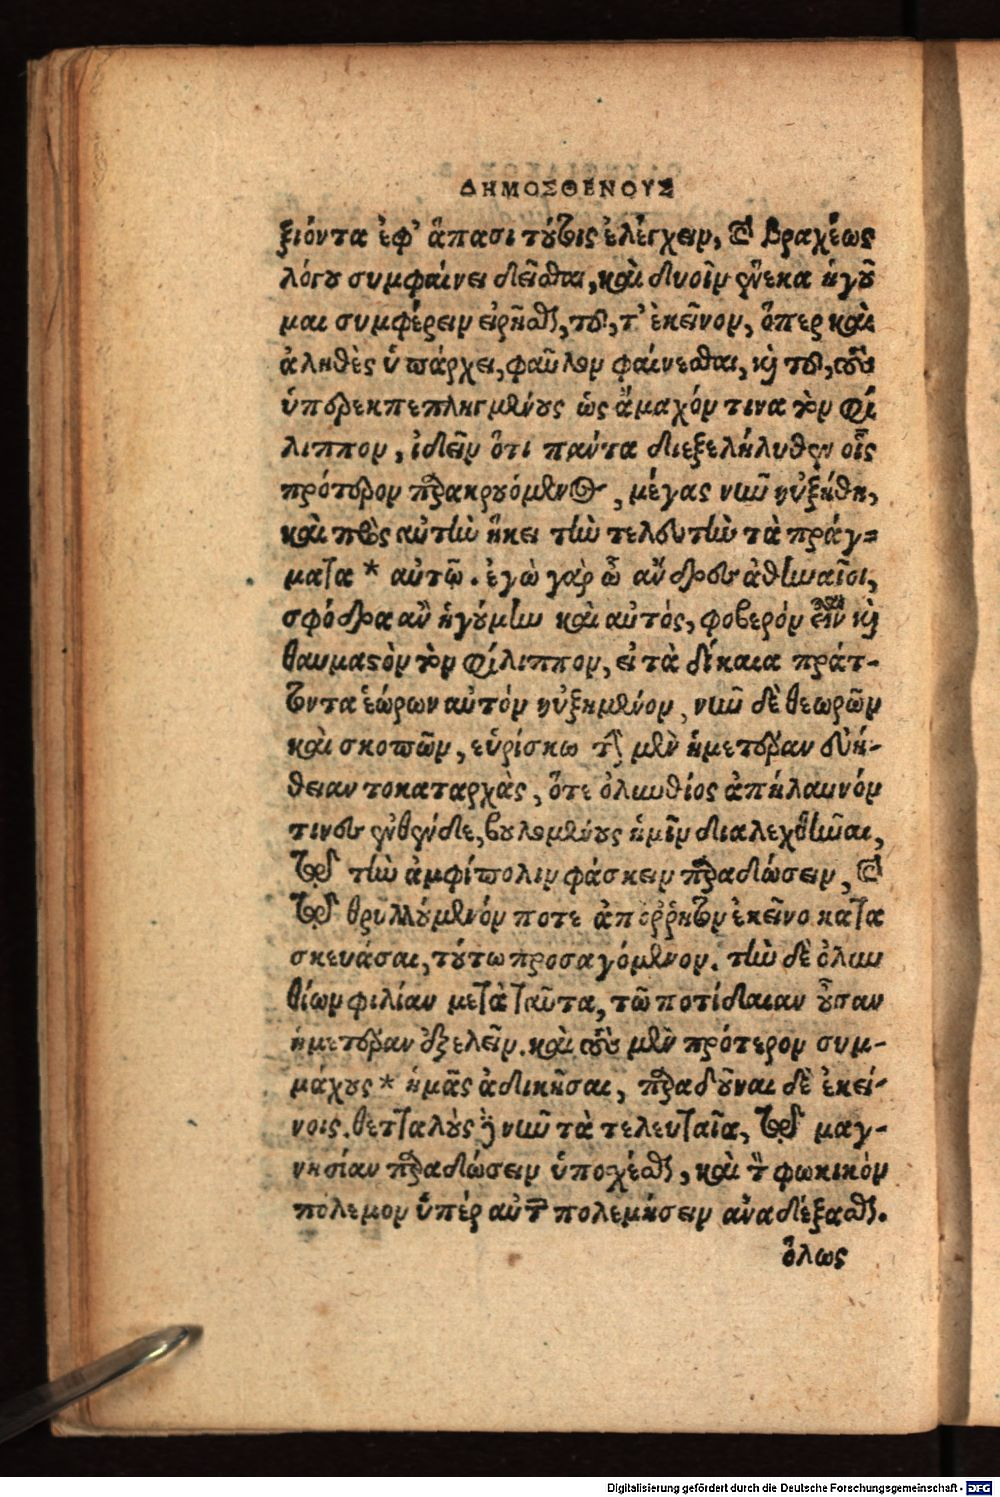 ΔΗΜΟΣΘΕΝΟΥΣ
ξιόντα ἐφ' ἅπασι τούτοις ἐλέγχειν, καὶ βραχέως
λόγου συμφαίνει δεῖσθαι, καὶ δυοῖν ἕνεκα ἡγοῦ
μαι συμφέρειν εἰρῆσθαι, τοῦ, τ' ἐκεῖνον, ὅπερ καὶ
ἀληθὲς ὑπάρχει, φαῦλον φαίνεσθαι, καὶ τοῦ, τοὺς
ὑπερεκπεπληγμένους ὡς ἄμαχόν τινα τὸν Φί
λιππον, ἰδεῖν ὅτι πάντα διεξελήλυθεν οἷς
πρότερον παρακρουόμενος, μέγας νῦν ηὐξήθη,
καὶ πρὸς αὐτὴν ἥκει τὴν τελευτὴν τὰ πράγ=
ματα * αὐτῷ. ἐγὼ γὰρ ὦ ἄνδρες ἀθηναῖοι,
σφόδρα ἂν ἡγούμην καὶ αὐτός, φοβερόν εἶναι καὶ
θαυμαστὸν τὸν Φίλιππον, εἰ τὰ δίκαια πράτ-
τοντα ἑώρων αὐτόν ηὐξημένον, νῦν δὲ θεωρῶν
καὶ σκοπῶν, εὑρίσκω τὴν μὲν ἡμετέραν εὐή-
θειαν τοκαταρχὰς, ὅτε ὀλυνθίος ἀπήλαυνόν
τινες ἐνθένδε, βουλομένους ἡμῖν διαλεχθῆναι,
τῷ τὴν ἀμφίπολιν φάσκειν παραδώσειν, καὶ
τῷ θρυλλούμενόν ποτε ἀπόῤῥητον ἐκεῖνο κατα
σκευάσαι, τούτω προσαγόμενον. τὴν δὲ ὀλυν
θίων φιλίαν μετὰ ταῦτα, τῷ ποτίδαιαν οὖσαν
ἡμετέραν ἐξελεῖν. καὶ τοὺς μὲν πρότερον συμ-
μάχους * ἡμᾶς ἀδικῆσαι, παραδοῦναι δὲ ἐκεί-
νοις. θετταλοὺς δὲ νῦν τὰ τελευταῖα, τῷ μαγ-
νησίαν παραδώσειν ὑποσχέσθαι, καὶ τὸν φωκικὸν
πόλεμον ὑπέρ αὐτῶν πολεμήσειν ἀναδέξασθαι.
ὅλως
Digitalisierung gefördert durch die Deutsche Forschungsgemeinschaft - DFG